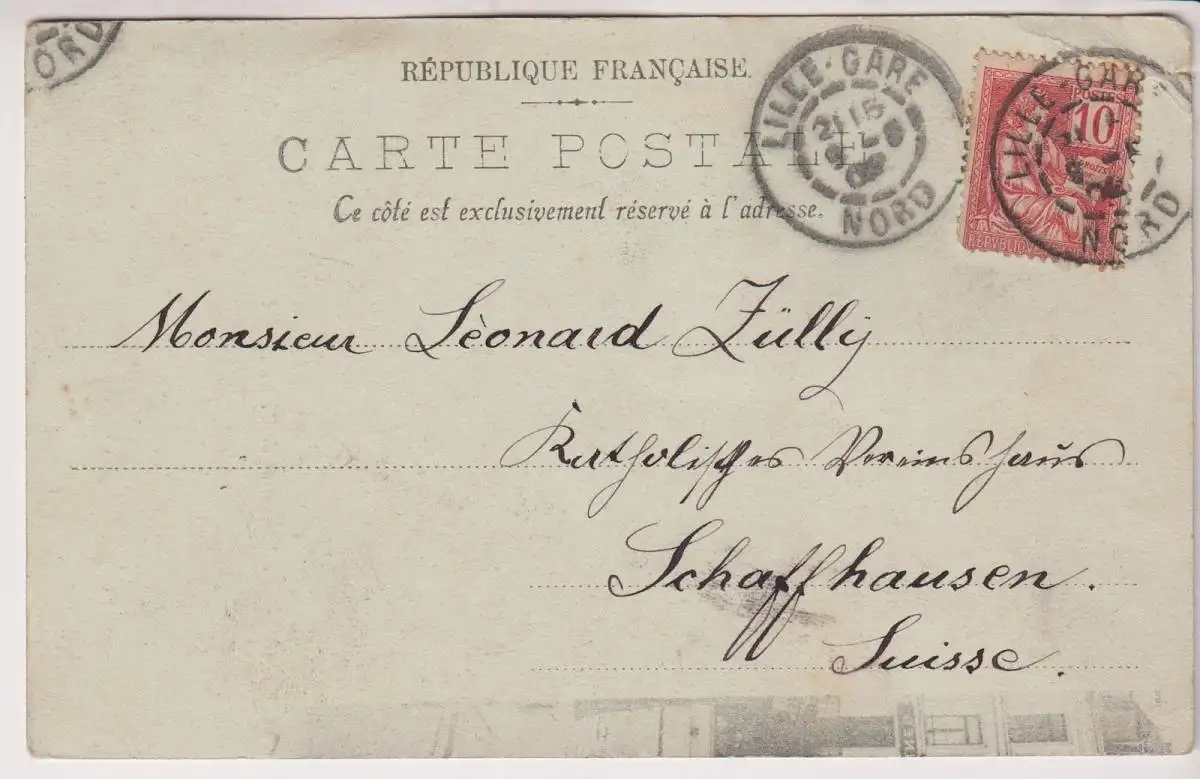 ORD
RÉPUBLIQUE FRANÇAISE.
CARTE POSTALE
Ce côté est exclusivement réservé à l'adresse.
LILLE-GARE
NORD
POSTES
10
LILLE-GAR
NORD
Monsieur Lèonard Züllÿ
Katholisches Vereinshaus
Schaffhausen.
Suisse.